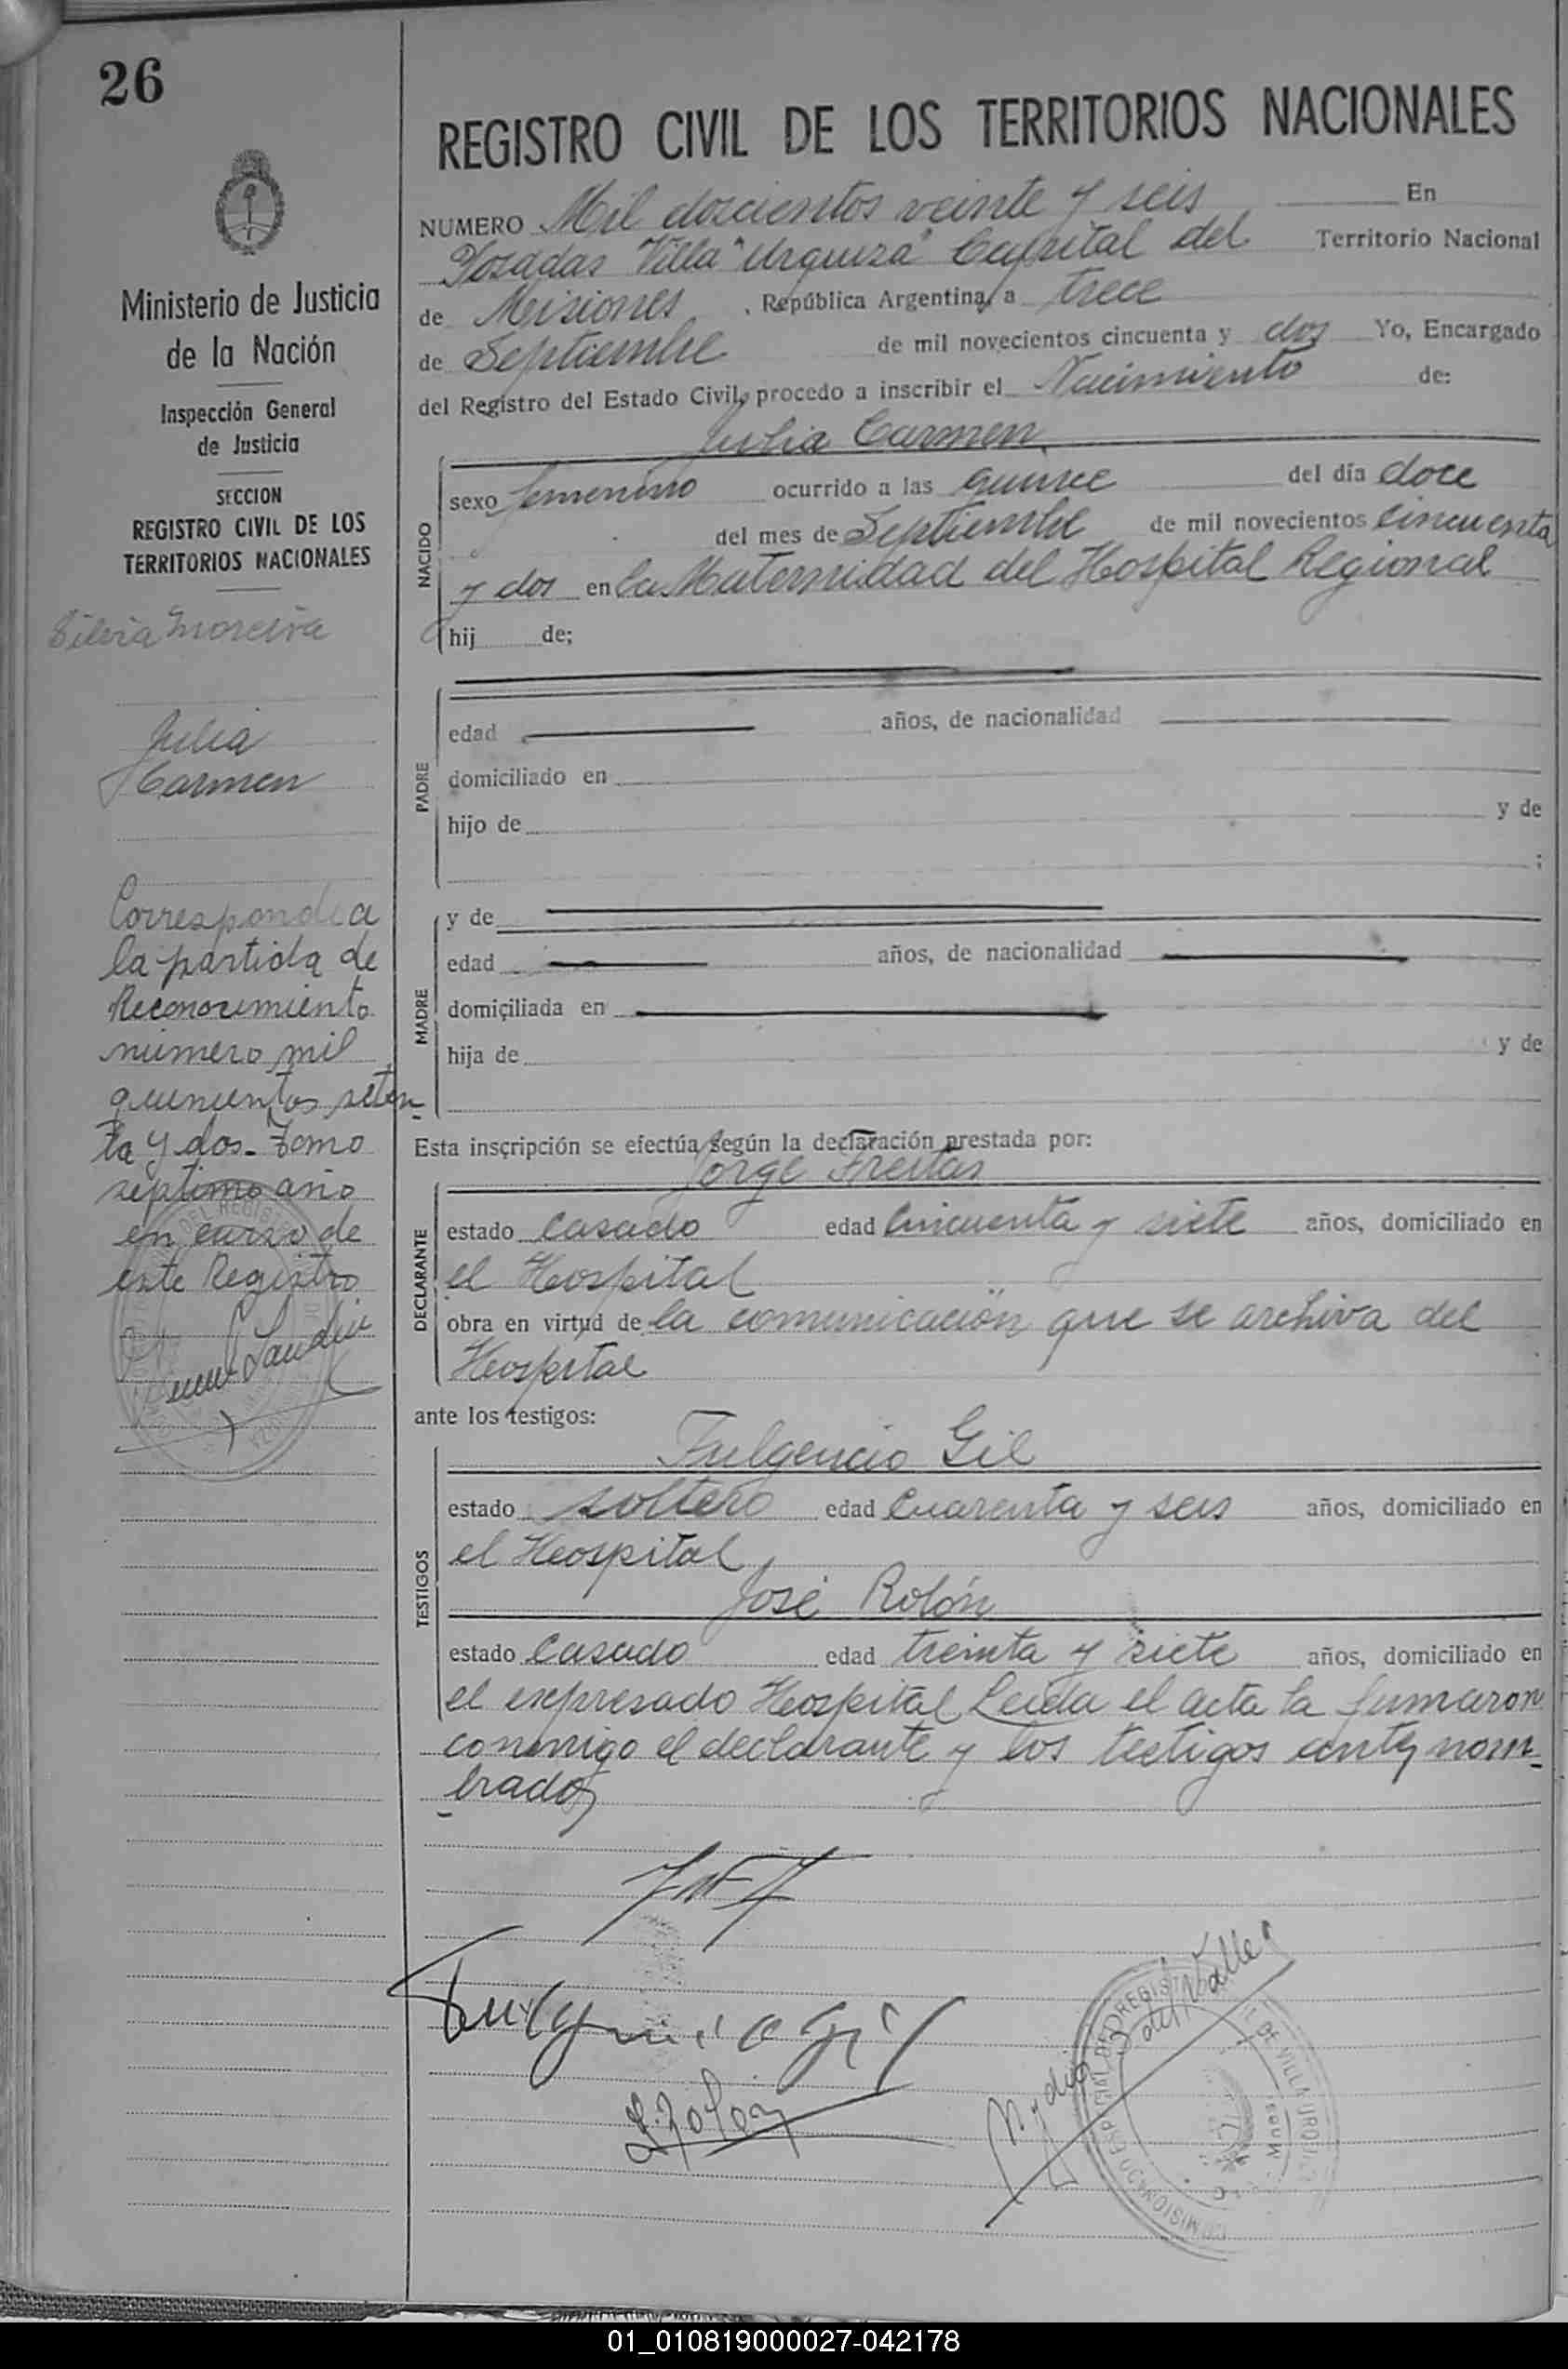 26
Ministerio de Justicia
de la Nación
Inspección General
de Justicia
SECCION
REGISTRO CIVIL DE LOS
TERRITORIOS NACIONALES
Silvia Moreira
Julia
Carmen
Corresponde a
la partida de
Reconocimiento
número mil
quinientos seten
ta y dos. Tomo
septimo año
en curso de
este Registro
REGISTRO CIVIL DE LOS TERRITORIOS NACIONALES
NUMERO Mil doscientos veinte y seis En
Posadas Villa "Urquiza" Capital del Territorio Nacional
de Misiones, República Argentina, a trece
de Septiembre de mil novecientos cincuenta y dos Yo, Encargado
del Registro del Estado Civil, procedo a inscribir el Nacimiento de:
Julia Carmen
NACIDO
sexo femenino ocurrido a las quince del día doce
del mes de Septiembre de mil novecientos cincuenta
y dos en la Maternidad del Hospital Regional
hij de;
PADRE
edad años, de nacionalidad
domiciliado en
hijo de y de
;
MADRE
y de
edad años, de nacionalidad
domiciliada en
hija de y de
Esta inscripción se efectúa según la declaración prestada por:
Jorge Freitas
DECLARANTE
estado casado edad cincuenta y siete años, domiciliado en
el Hospital
obra en virtud de la comunicación que se archiva del
Hospital
ante los testigos:
Fulgencio Gil
TESTIGOS
estado soltero edad cuarenta y seis años, domiciliado en
el Hospital
José Rolón
estado casado edad treinta y siete años, domiciliado en
el expresado Hospital Leida el acta la firmaron
conmigo el declarante y los testigos antes nom-
brados
Fulgencio Gil
J. Rolon
Nydia B del Valle
01_010819000027-042178